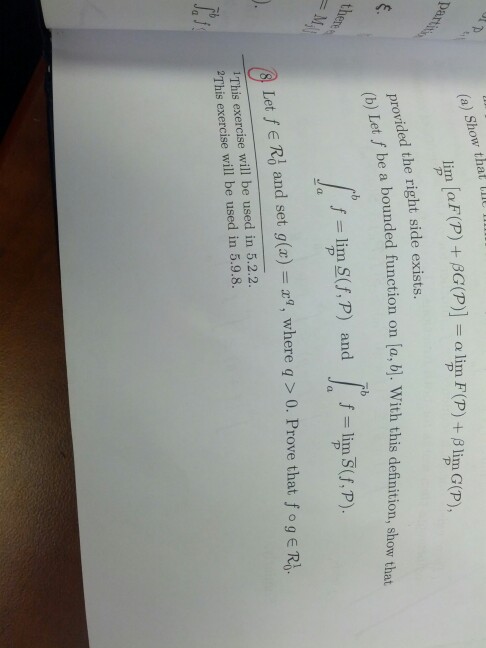 (a) Show that the
lim_P [αF(P) + βG(P)] = α lim_P F(P) + β lim_P G(P),
provided the right side exists.
(b) Let f be a bounded function on [a, b]. With this definition, show that
∫_a^b f = lim_P S(f, P) and ∫_a^b f = lim_P S̅(f, P).
8. Let f ∈ R_0^1 and set g(x) = x^q, where q > 0. Prove that f ∘ g ∈ R_0^1.
¹This exercise will be used in 5.2.2.
²This exercise will be used in 5.9.8.